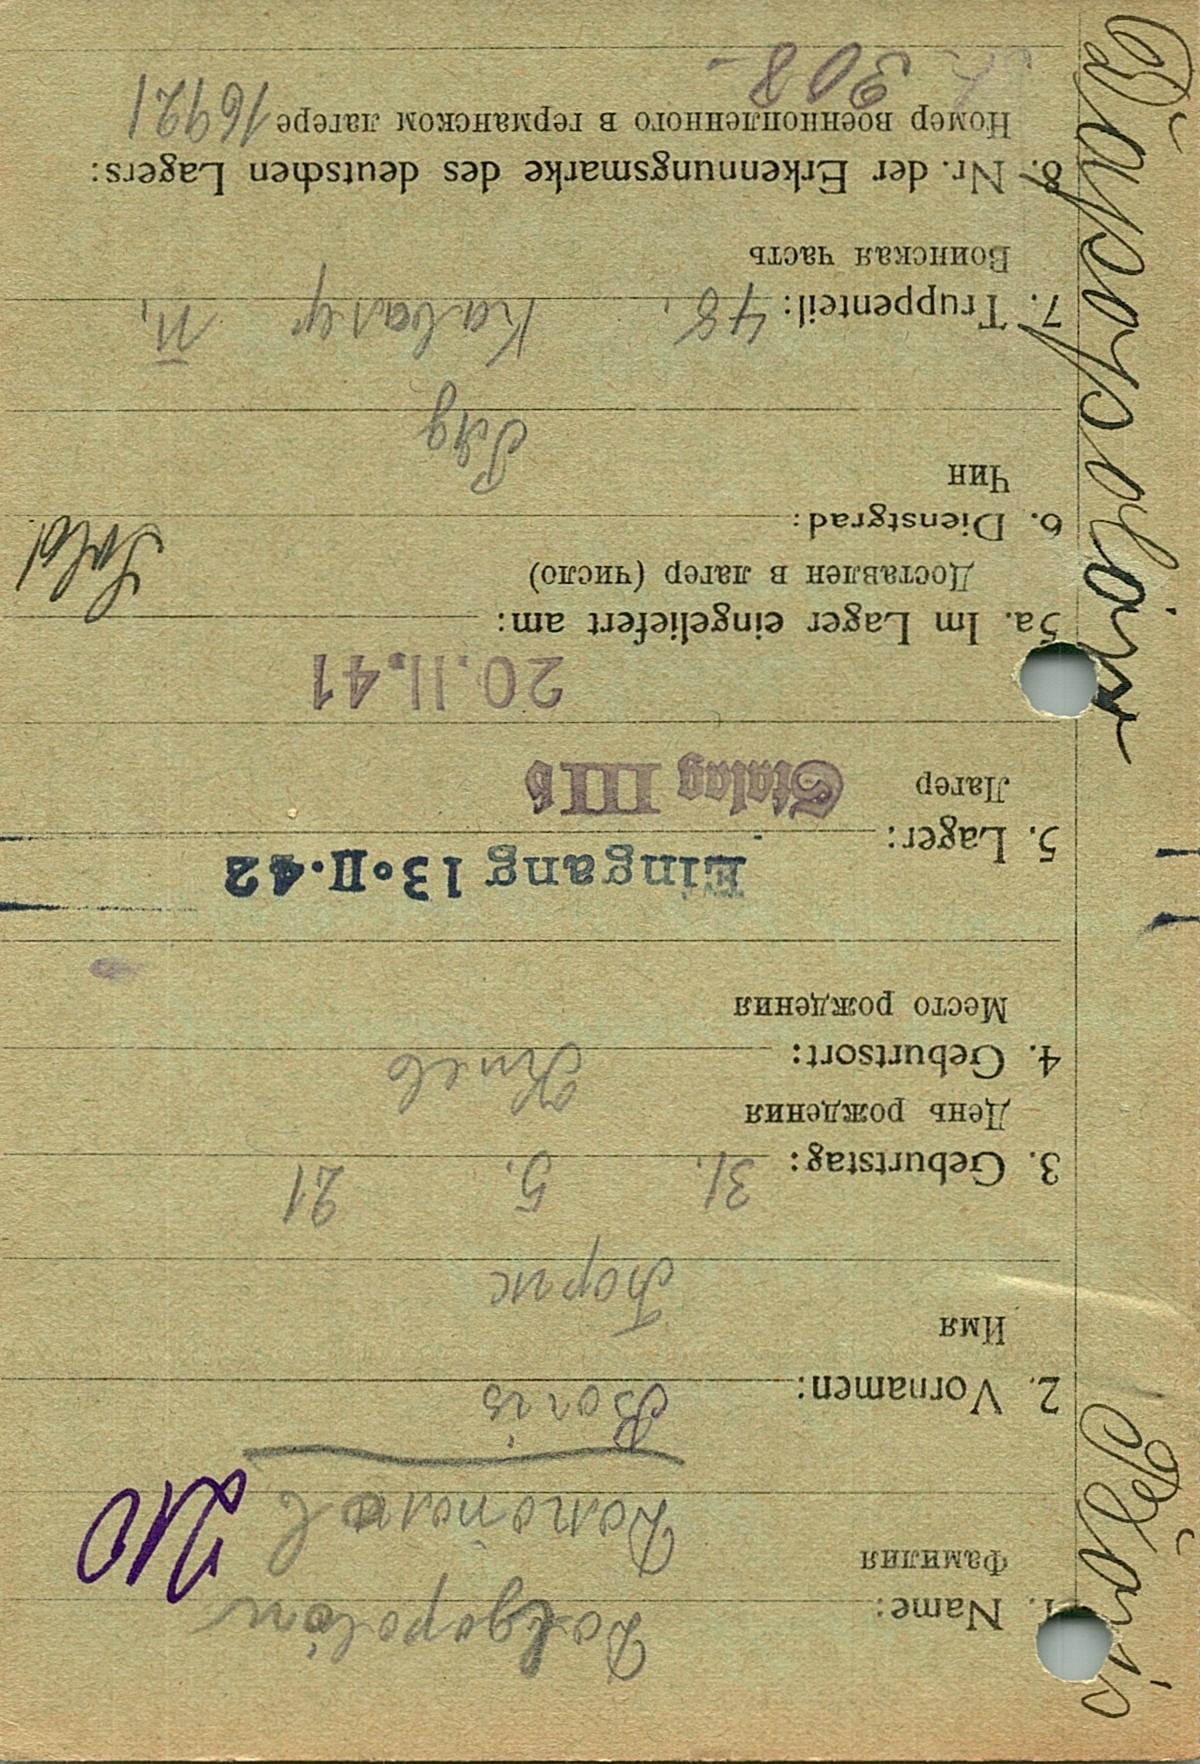 1. Name: Dolgopolow
Фамилия Долополов
210
2. Vornamen: Boris
Имя Борис
3. Geburtstag: 31. 5. 21
День рождения
4. Geburtsort: Киев
Место рождения
Eingang 13.II.42
5. Lager: Stalag III b
Лагер
20.11.41
5a. Im Lager eingeliefert am:
Доставлен в лагер (число)
6. Dienstgrad: Sold
Чин Ряд
7. Truppenteil: 48. Кавалер п.
Воинская часть
8. Nr. der Erkennungsmarke des deutschen Lagers:
Номер военнопленного в германском лагере 16921
308
Boris